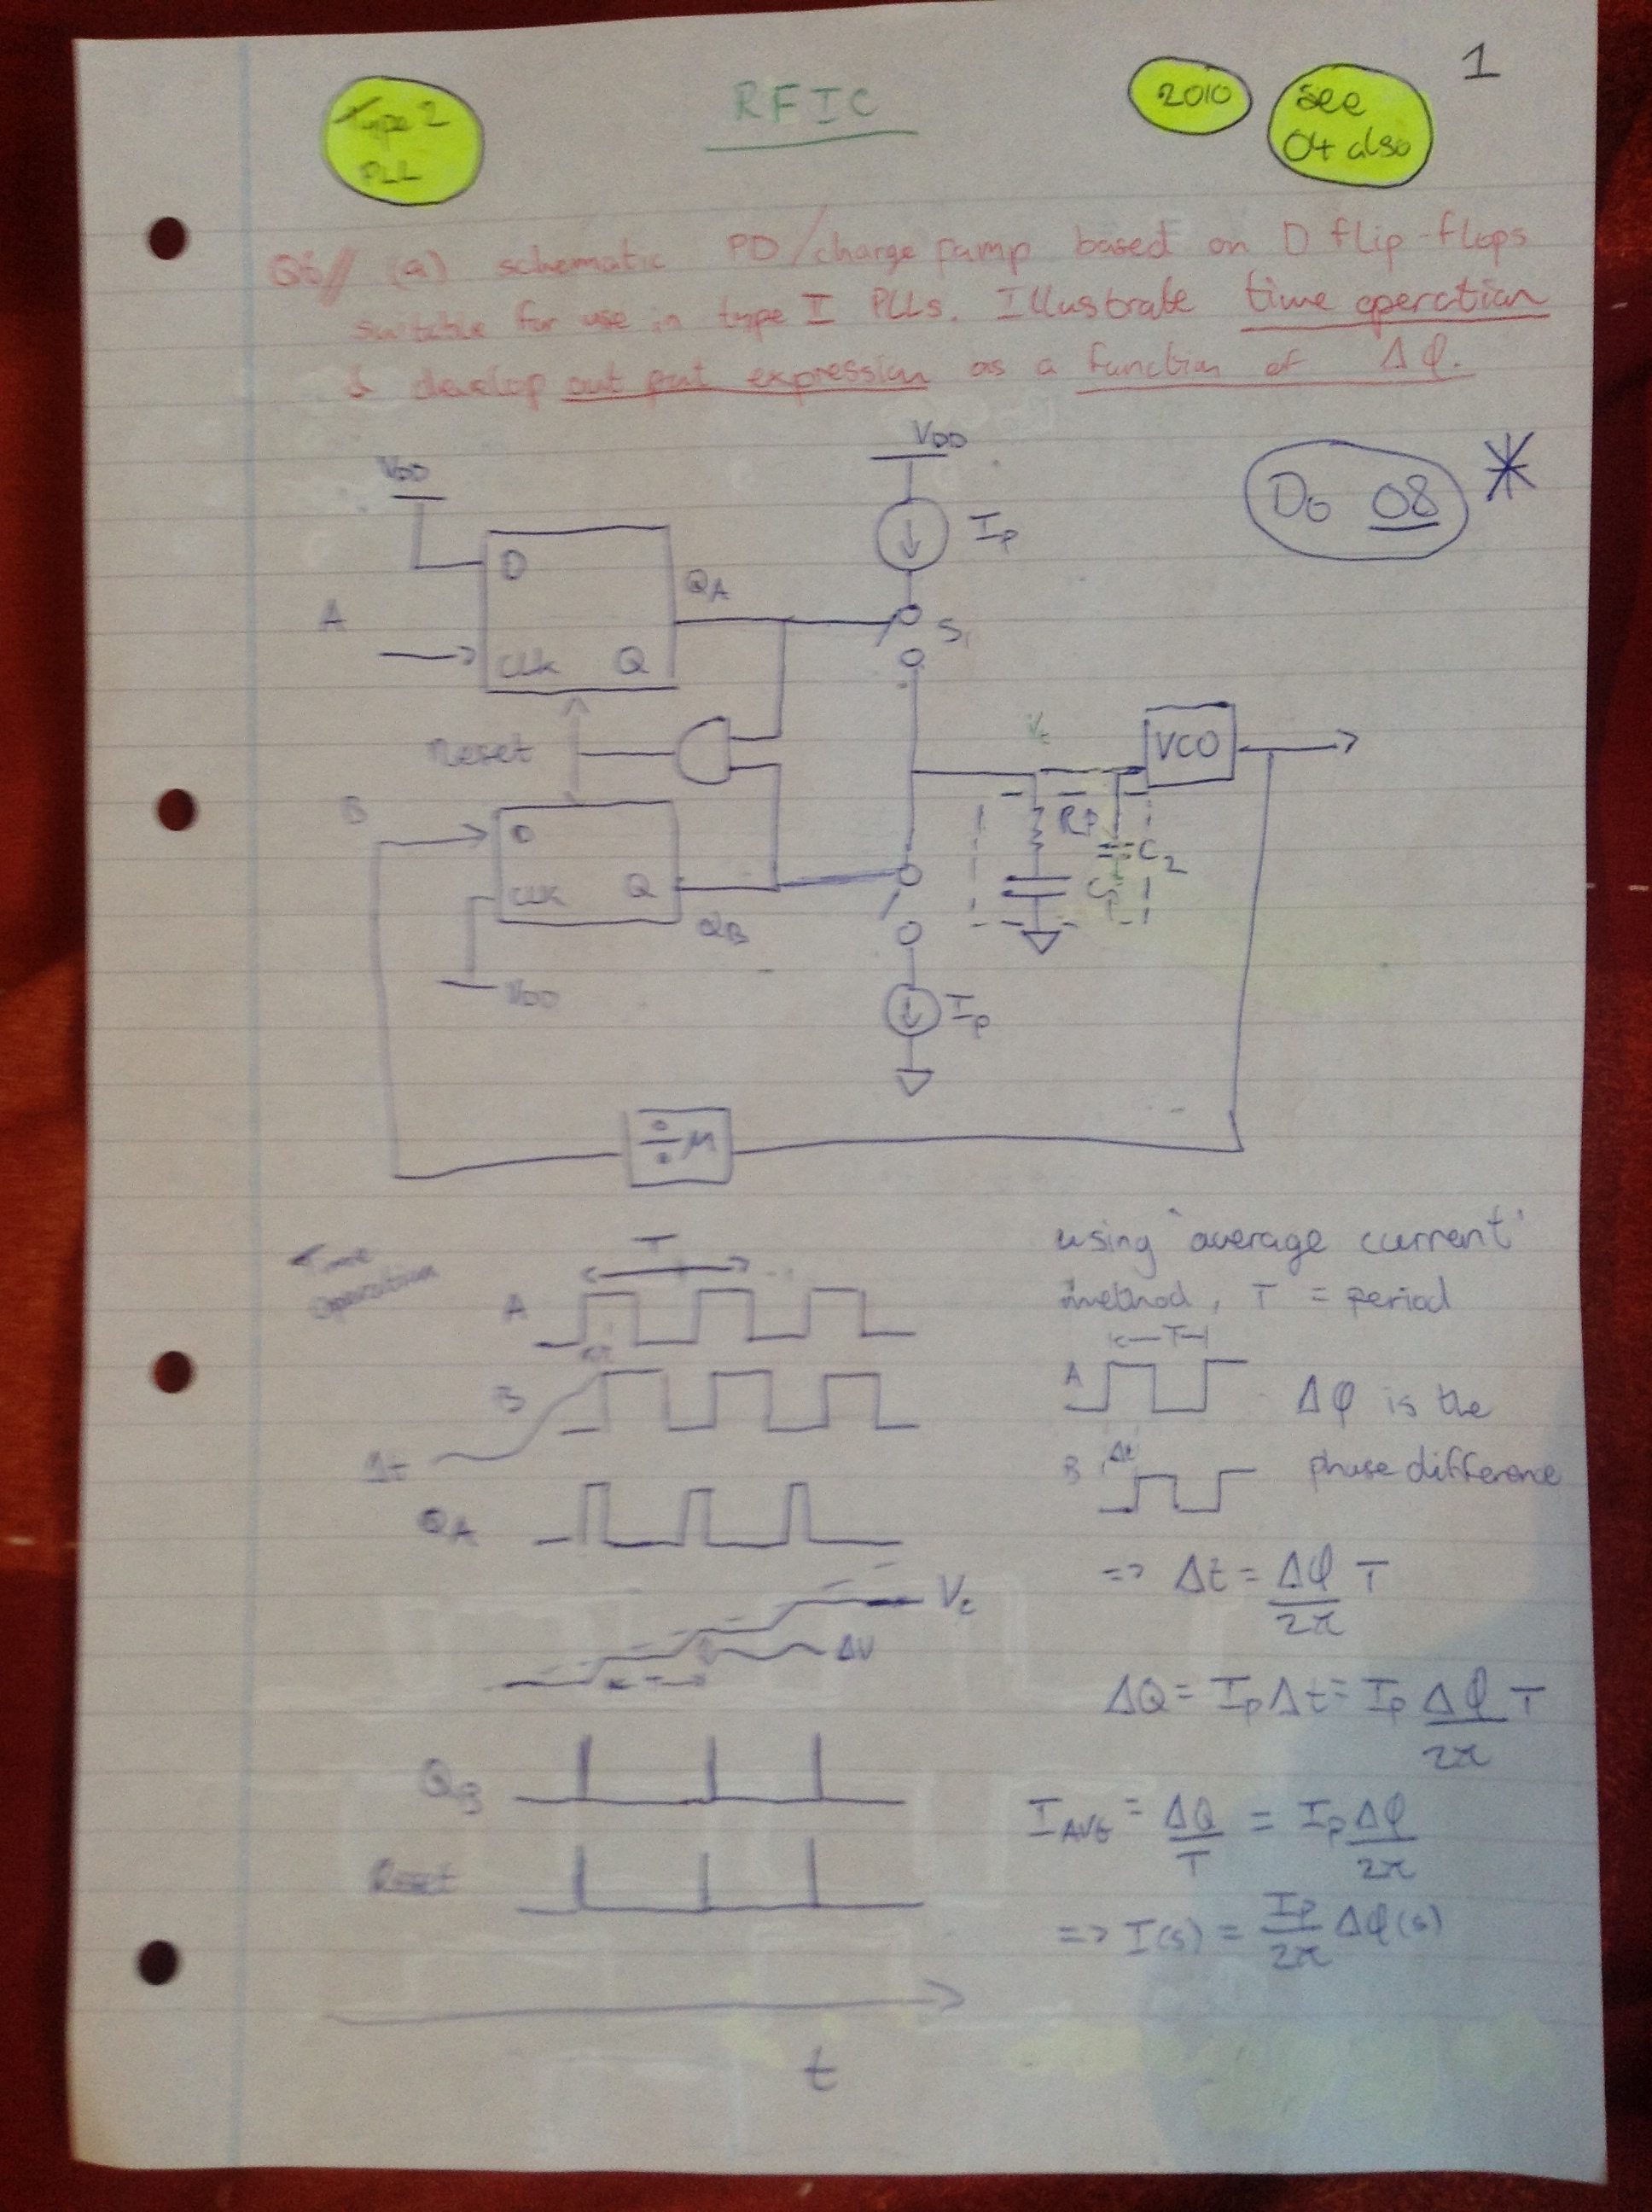 1
Type 2
PLL
RFIC
2010
see
04 also
Q6// (a) schematic PD/charge pump based on D flip-flops
suitable for use in type II PLLs. Illustrate time operation
& develop out put expression as a function of Δφ.
VDD
VDD
Do 08 *
Ip
D
QA
A
S1
CLK Q
Vc
VCO
Reset
B
D
Rp
C2
CLK Q
QB
VDD
Ip
÷ M
Time
operation
T
A
B
Δt
QA
Vc
ΔV
T
QB
Reset
t
using 'average current'
method, T = period
T
A
Δφ is the
B Δt phase difference
=> Δt = Δφ/2π T
ΔQ = Ip Δt = Ip Δφ/2π T
IAVG = ΔQ/T = Ip Δφ/2π
=> I(s) = Ip/2π Δφ(s)